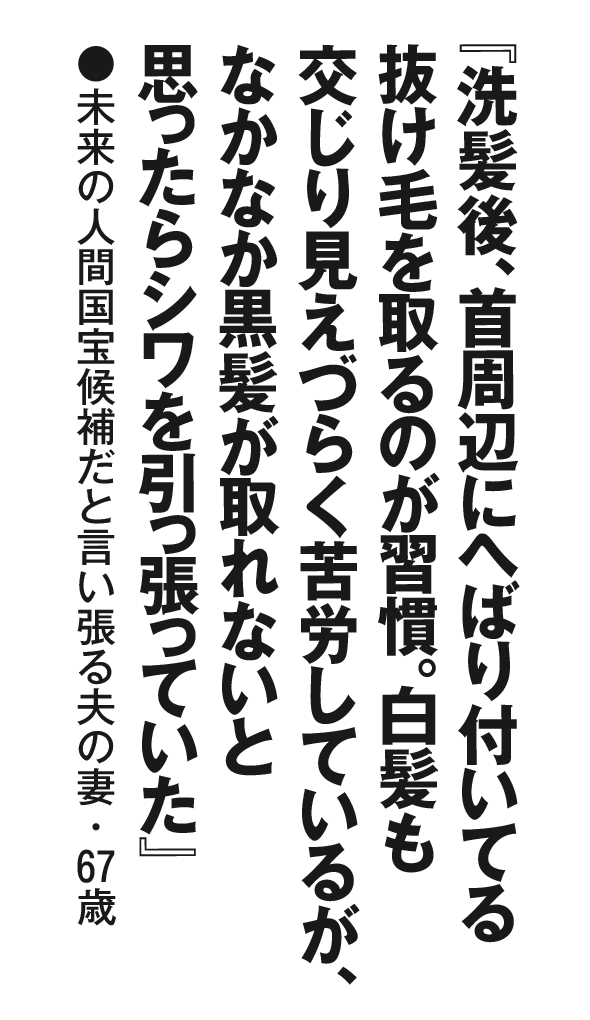 『洗髪後、首周辺にへばり付いてる
抜け毛を取るのが習慣。白髪も
交じり見えづらく苦労しているが、
なかなか黒髪が取れないと
思ったらシワを引っ張っていた』
●未来の人間国宝候補だと言い張る夫の妻・67歳